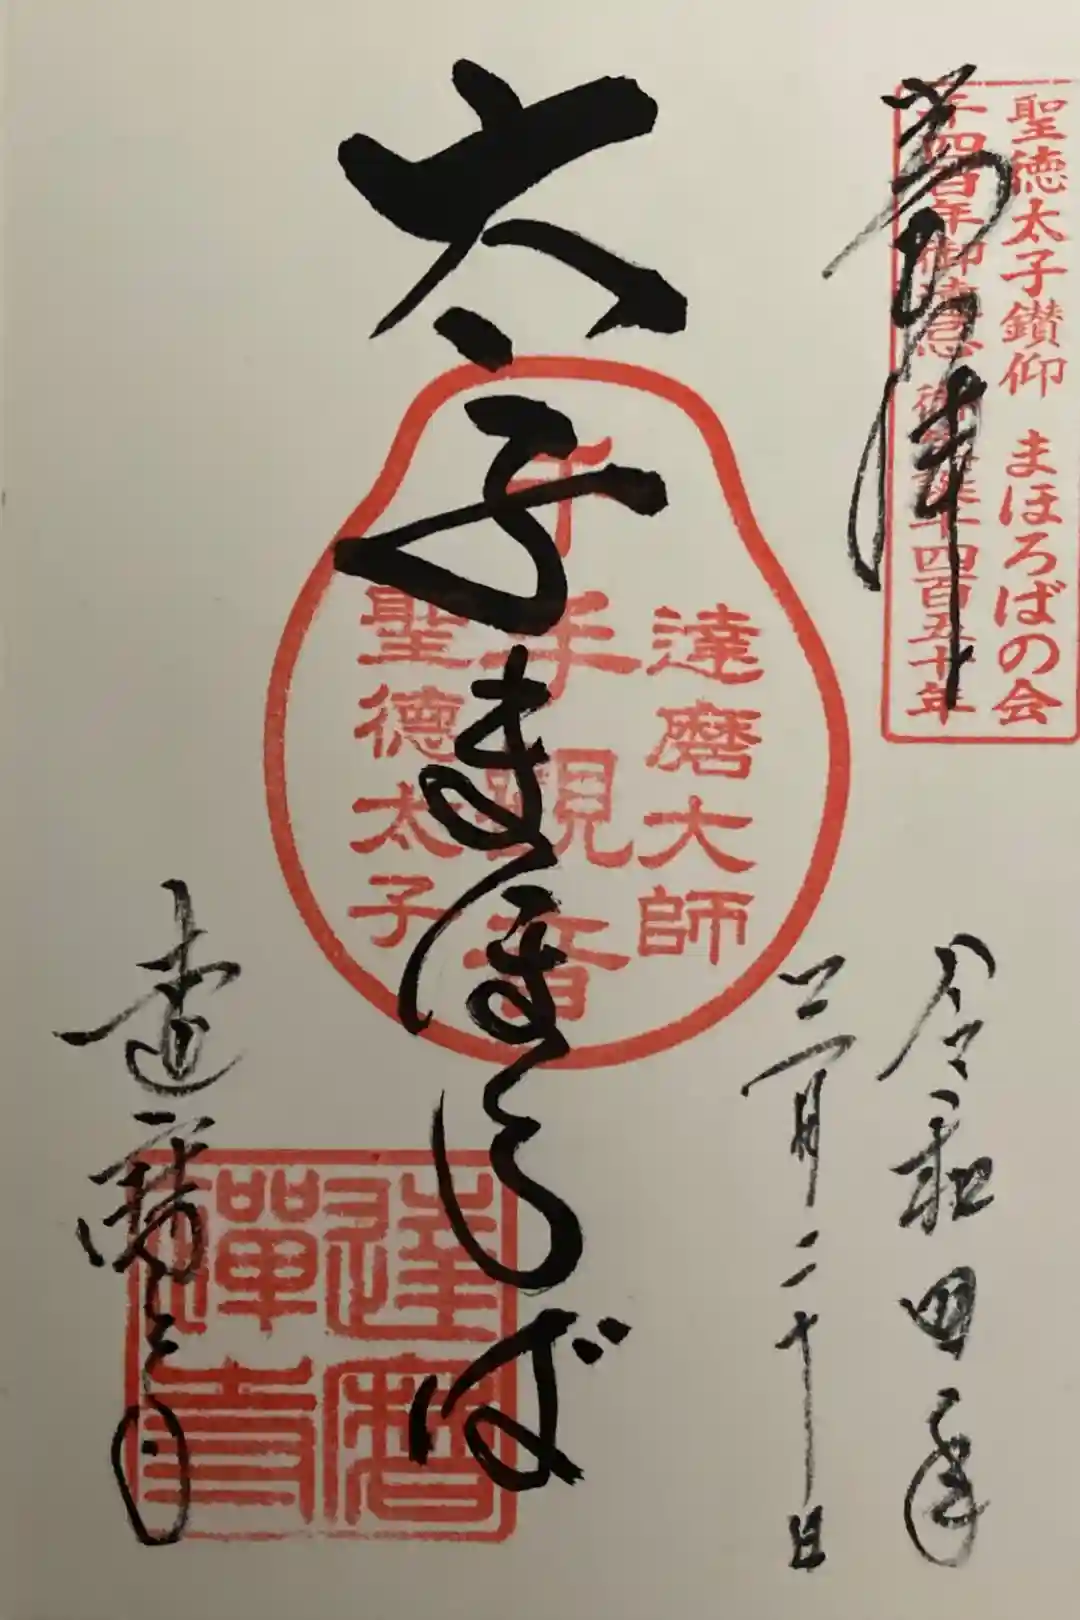 聖徳太子鑽仰 まほろばの会
千四百年御遠忌 御生誕千四百五十年
奉拝
令和四年
三月二十日
太子まほろば
達磨大師
千手観音
聖徳太子
達磨寺
達磨禅寺